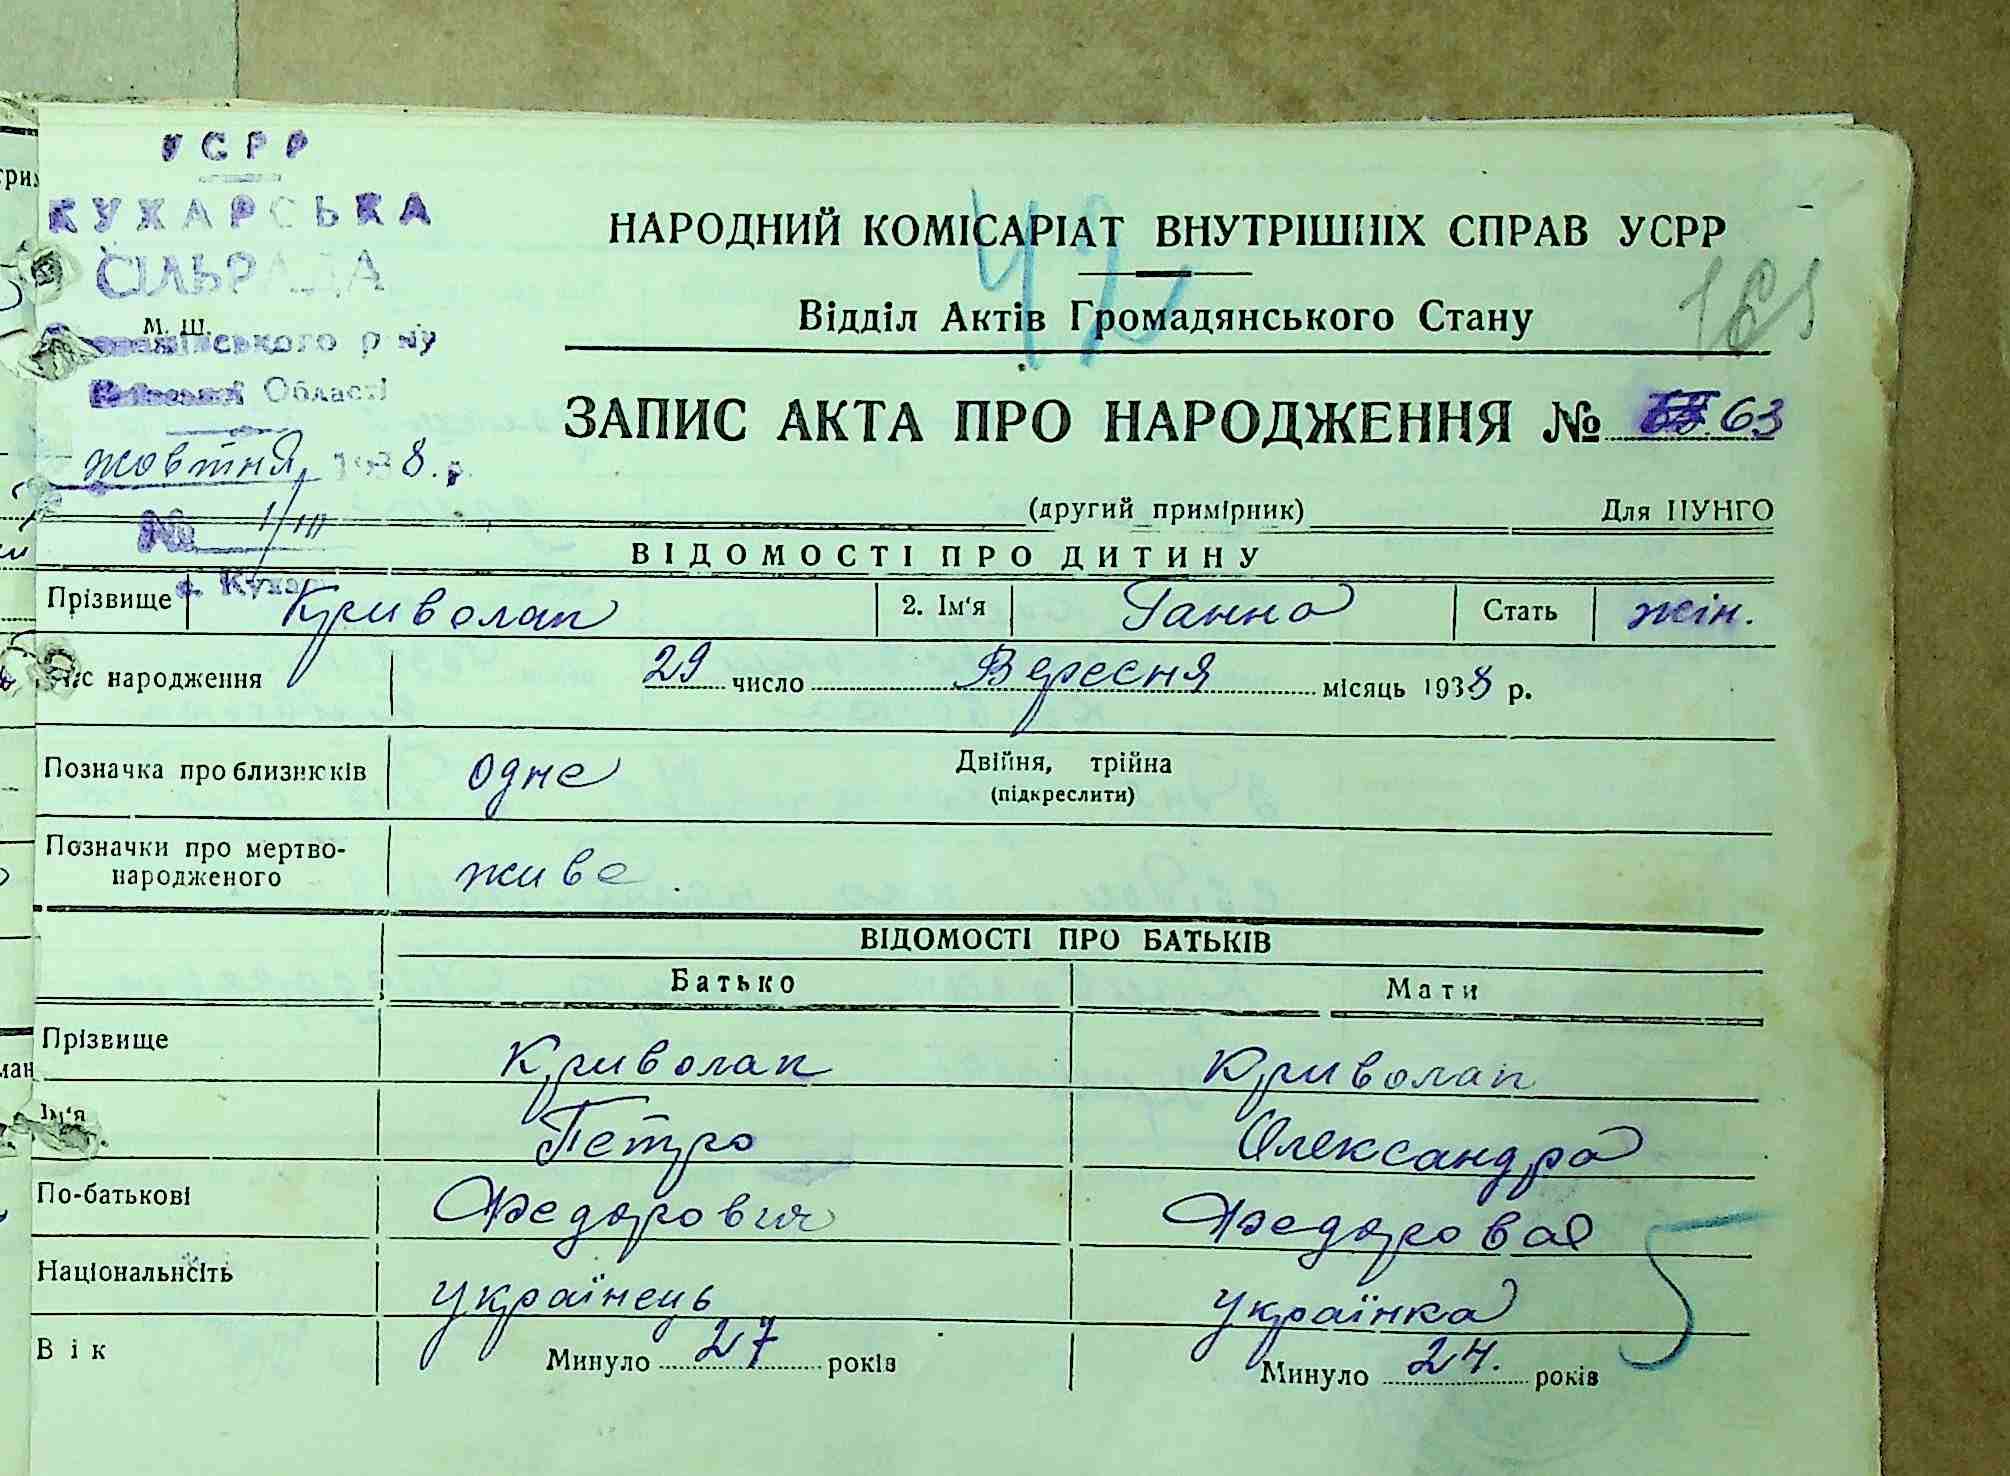 УСРР
КУХАРСЬКА
СІЛЬРАДА
М. Ш.
р-ну
Київської Області
жовтня 1938 р.
№ 1/III
с. Кухарі
42
181
НАРОДНИЙ КОМІСАРІАТ ВНУТРІШНІХ СПРАВ УСРР
Відділ Актів Громадянського Стану
ЗАПИС АКТА ПРО НАРОДЖЕННЯ № 63
(другий примірник) Для ЦУНГО
ВІДОМОСТІ ПРО ДИТИНУ
Прізвище Криволап 2. Ім'я Ганна Стать жін.
Час народження 29 число Вересня місяць 1938 р.
Позначка про близнюків одне Двійня, трійна
(підкреслити)
Позначки про мертво-
народженого живе
ВІДОМОСТІ ПРО БАТЬКІВ
Батько Мати
Прізвище Криволап Криволап
Ім'я Петро Олександра
По-батькові Федорович Федоровая
Національність українець українка
5
Вік Минуло 27 років Минуло 24. років